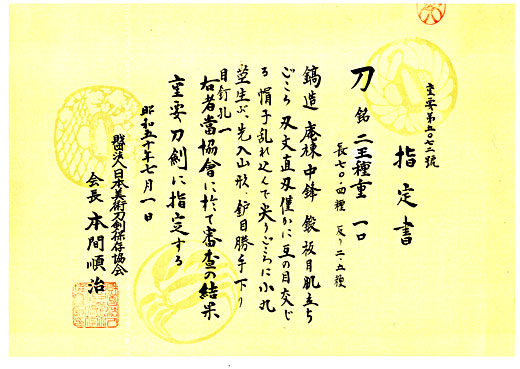 指定書
重要第五〇七二號
刀 銘 二王種重 一口
長七〇・四糎 反り二・五糎
鎬造 庵棟 中鋒 鍛 板目肌立ち
ごころ 刃文直刃僅かに互の目交じ
る 帽子乱れ込んで尖りごころに小丸
茎生ぶ、先入山形、鑢目勝手下り
目釘孔一
右者當協會に於て審査の結果
重要刀剣に指定する
昭和五十年七月一日
財団法人日本美術刀剣保存協会
会長 本間順治